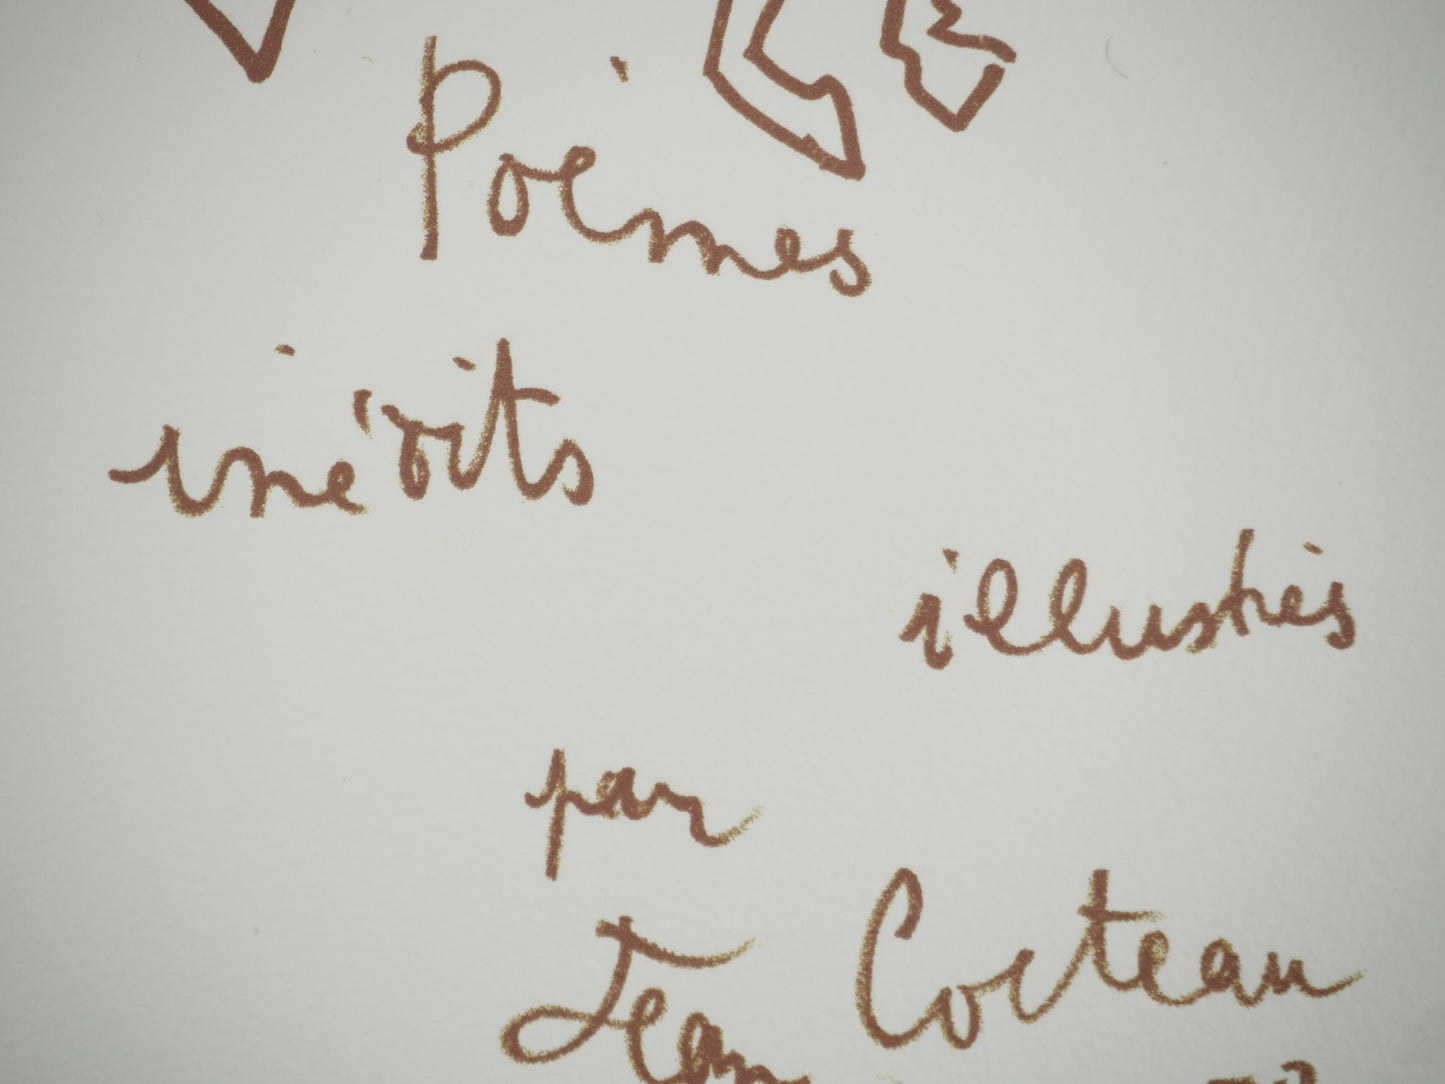 Poèmes
inédits
illustrés
par
Jean Cocteau